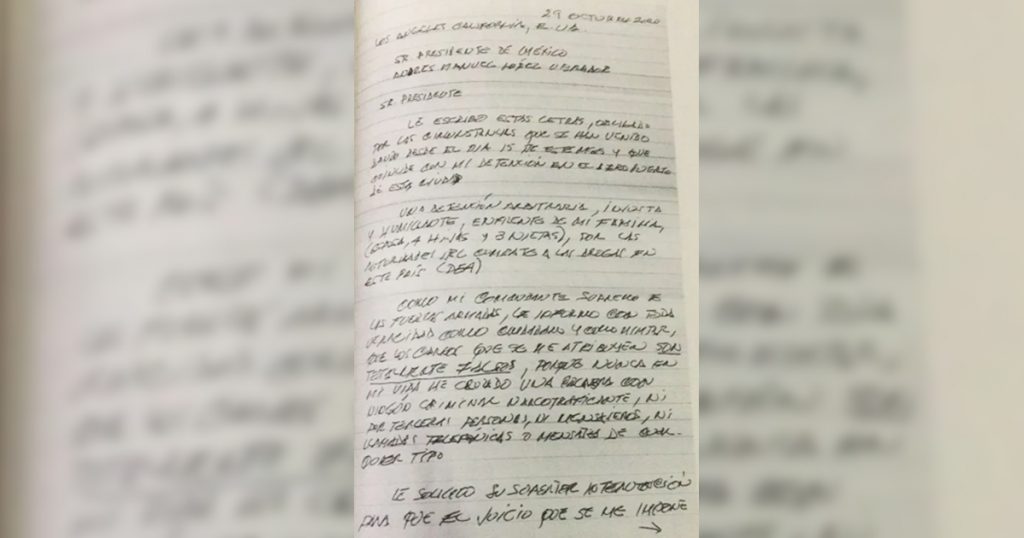 29 OCTUBRE 2020
LOS ANGELES CALIFORNIA, E.UA.
SR. PRESIDENTE DE MÉXICO
ANDRES MANUEL LÓPEZ OBRADOR
SR. PRESIDENTE
LE ESCRIBO ESTAS LETRAS, OBLIGADO
POR LAS CIRCUNSTANCIAS QUE SE HAN VENIDO
DANDO DESDE EL DIA 15 DE ESTE MES Y QUE
COINCIDE CON MI DETENCIÓN EN EL AEROPUERTO
DE ESTA CIUDAD
UNA DETENCIÓN ARBITRARIA, INJUSTA
Y HUMILLANTE, ENFRENTE DE MI FAMILIA,
(ESPOSA, 4 HIJAS Y 3 NIETAS), POR LAS
AUTORIDADES DEL COMBATE A LAS DROGAS EN
ESTE PAÍS (DEA)
COMO MI COMANDANTE SUPREMO DE
LAS FUERZAS ARMADAS, LE INFORMO CON TODA
VERACIDAD COMO CIUDADANO Y COMO MILITAR,
QUE LOS CARGOS QUE SE ME ATRIBUYEN SON
TOTALMENTE FALSOS, PORQUE NUNCA EN
MI VIDA HE CRUZADO UNA PALABRA CON
NINGÚN CRIMINAL NARCOTRAFICANTE, NI
POR TERCERAS PERSONAS, NI MENSAJEROS, NI
LLAMADAS TELEFÓNICAS O MENSAJES DE CUAL-
QUIER TIPO
LE SOLICITO SU SUPERIOR INTERVENCIÓN
PARA QUE EL JUICIO QUE SE ME IMPONE
→